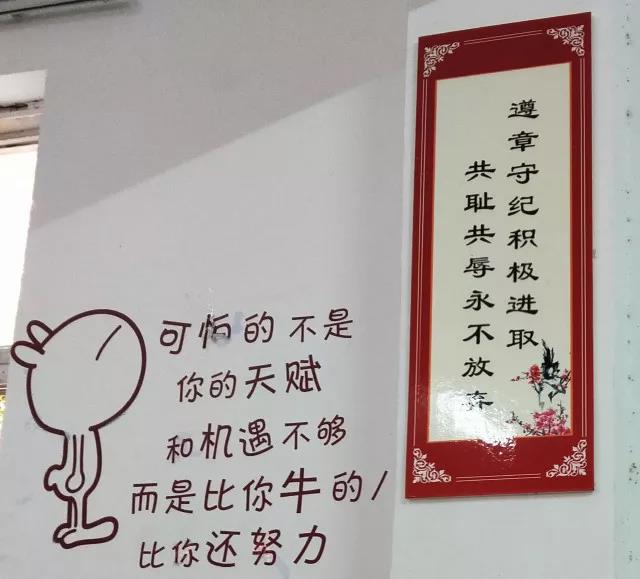 可怕的不是
你的天赋
和机遇不够
而是比你牛的人
比你还努力
遵章守纪积极进取
共耻共辱永不放弃